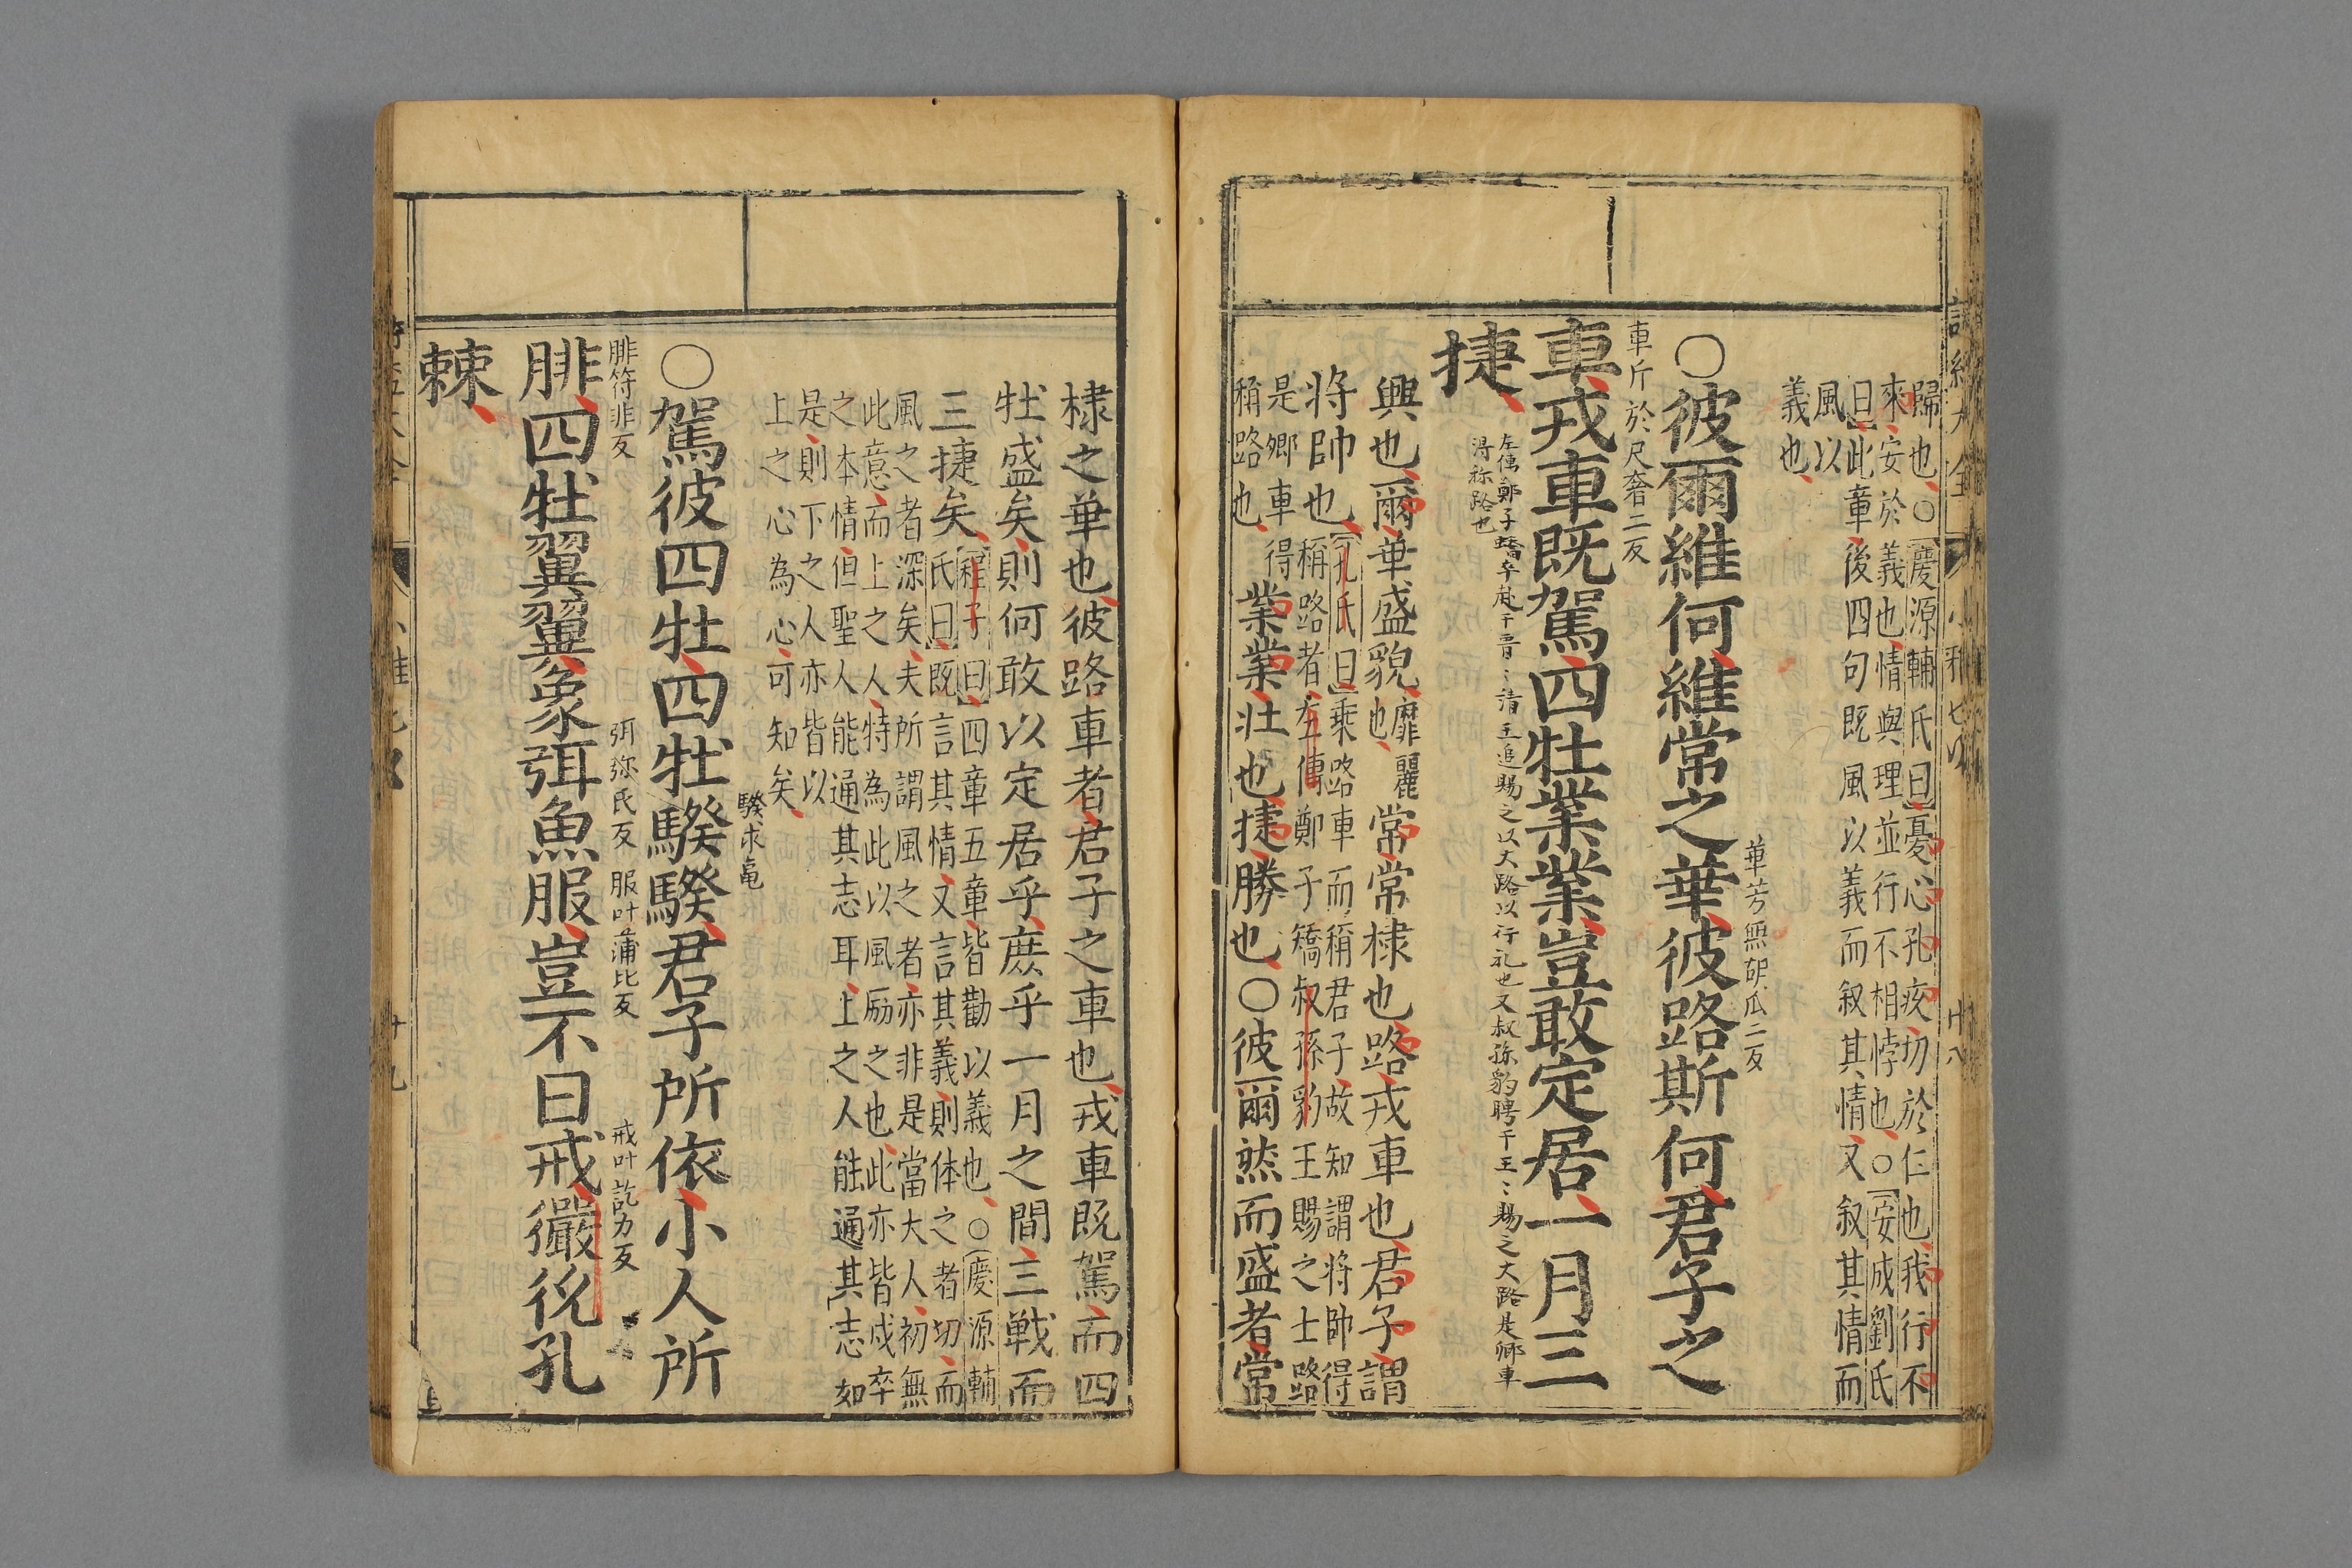 歸也○慶源輔氏曰憂心孔疚切於仁也我行不
來安於義也情與理並行不相悖也○安成劉氏
曰此章後四句既風以義而叙其情又叙其情而
風以
義也
華芳無胡瓜二反
○彼爾維何維常之華彼路斯何君子之
車斤於尺奢二反
車戎車既駕四牡業業豈敢定居一月三
捷
左傳鄭子蟜卒赴于晋〻請王追賜之以大路以行礼也又叔孫豹聘于王〻賜之大路是郷車
得称路也
興也爾華盛貌靡麗也常常棣也路戎車也君子謂
將帥也孔氏曰乘路車而稱君子故知謂將帥得
稱路者左傳鄭子矯叔孫豹王賜之士路
是郷車得
稱路也業業壯也捷勝也○彼爾然而盛者常
詩經大全 小雅七 廿八
棣之華也彼路車者君子之車也戎車既駕而四
牡盛矣則何敢以定居乎庶乎一月之間三戰而
三捷矣程子曰四章五章皆勸以義也○慶源輔
氏曰既言其情又言其義則体之者切而
風之者深矣夫所謂風之者亦非是當大人初無
此意而上之人特為此以風厲之也此亦皆戍卒
之本情但聖人能通其志耳上之人能通其志如
是則下之人亦皆以
上之心為心可知矣
騤求龜
○駕彼四牡四牡騤騤君子所依小人所
腓符非反 弭弥氏反 服叶蒲比反 戒叶訖力反
腓四牡翼翼象弭魚服豈不曰戒玁狁孔
棘